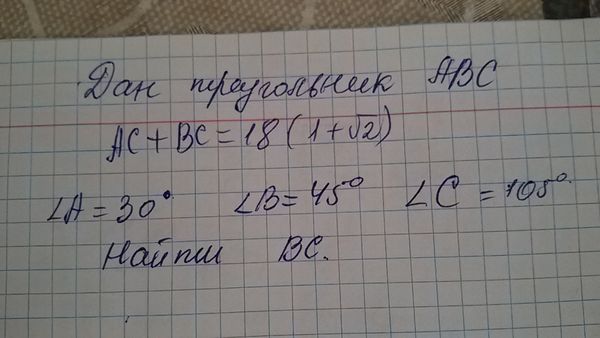 Дан треугольник ABC
AC + BC = 18 (1 + √2)
∠A = 30° ∠B = 45° ∠C = 105°
Найти BC.